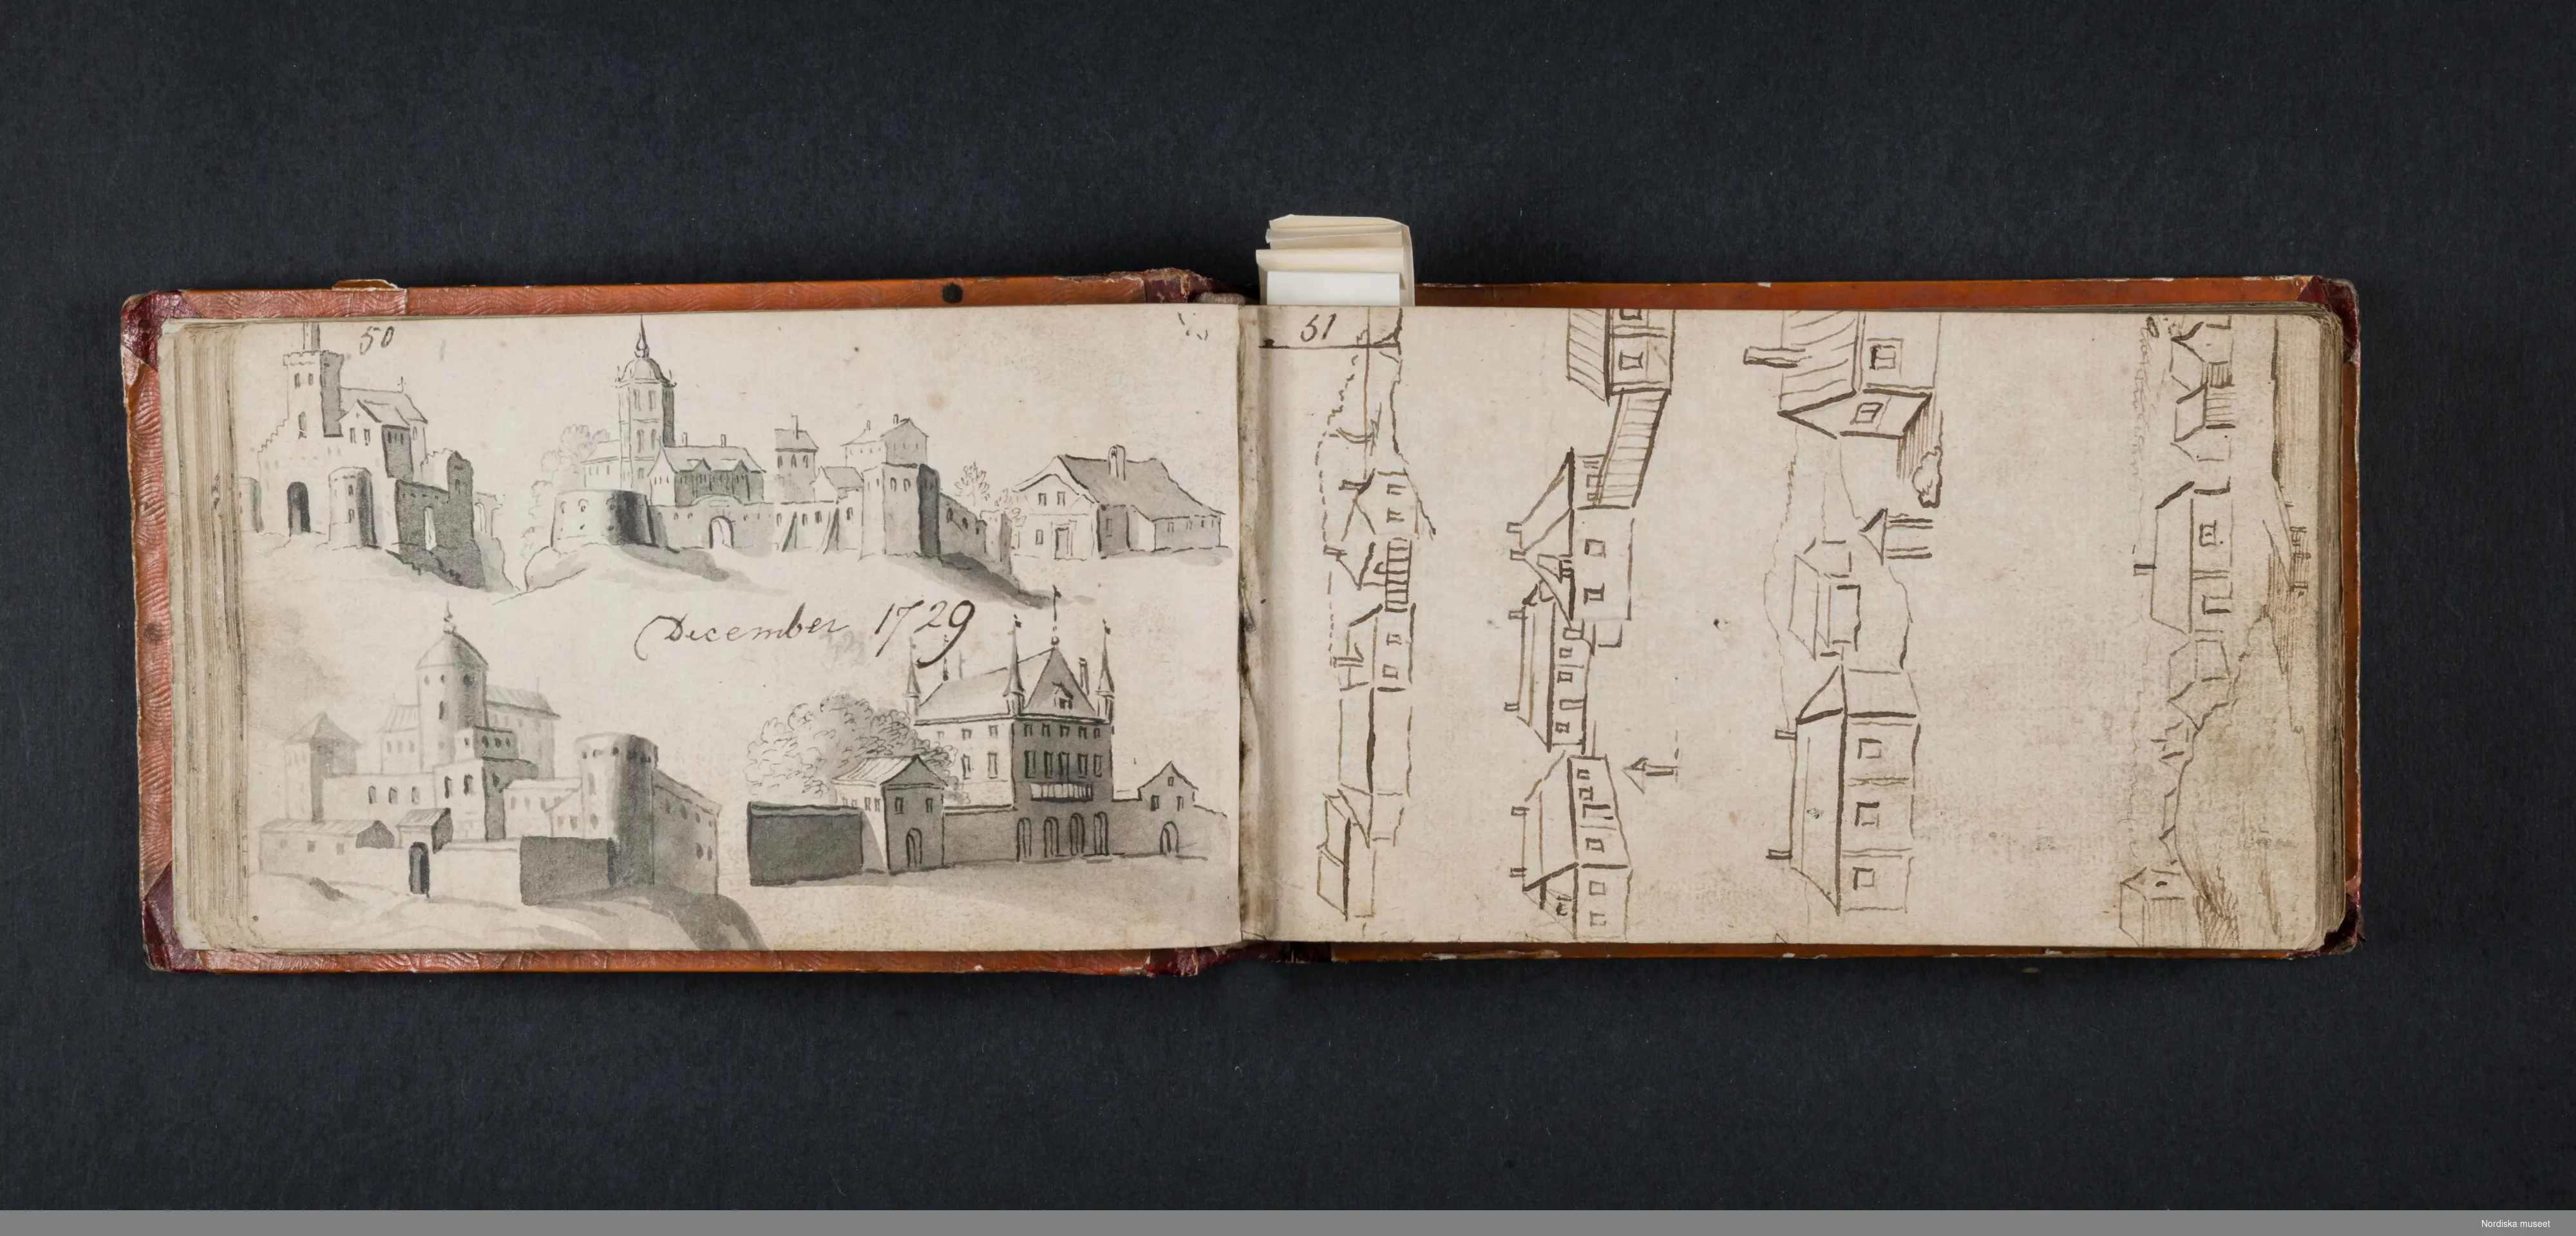 50
December 1729
51
Nordiska museet